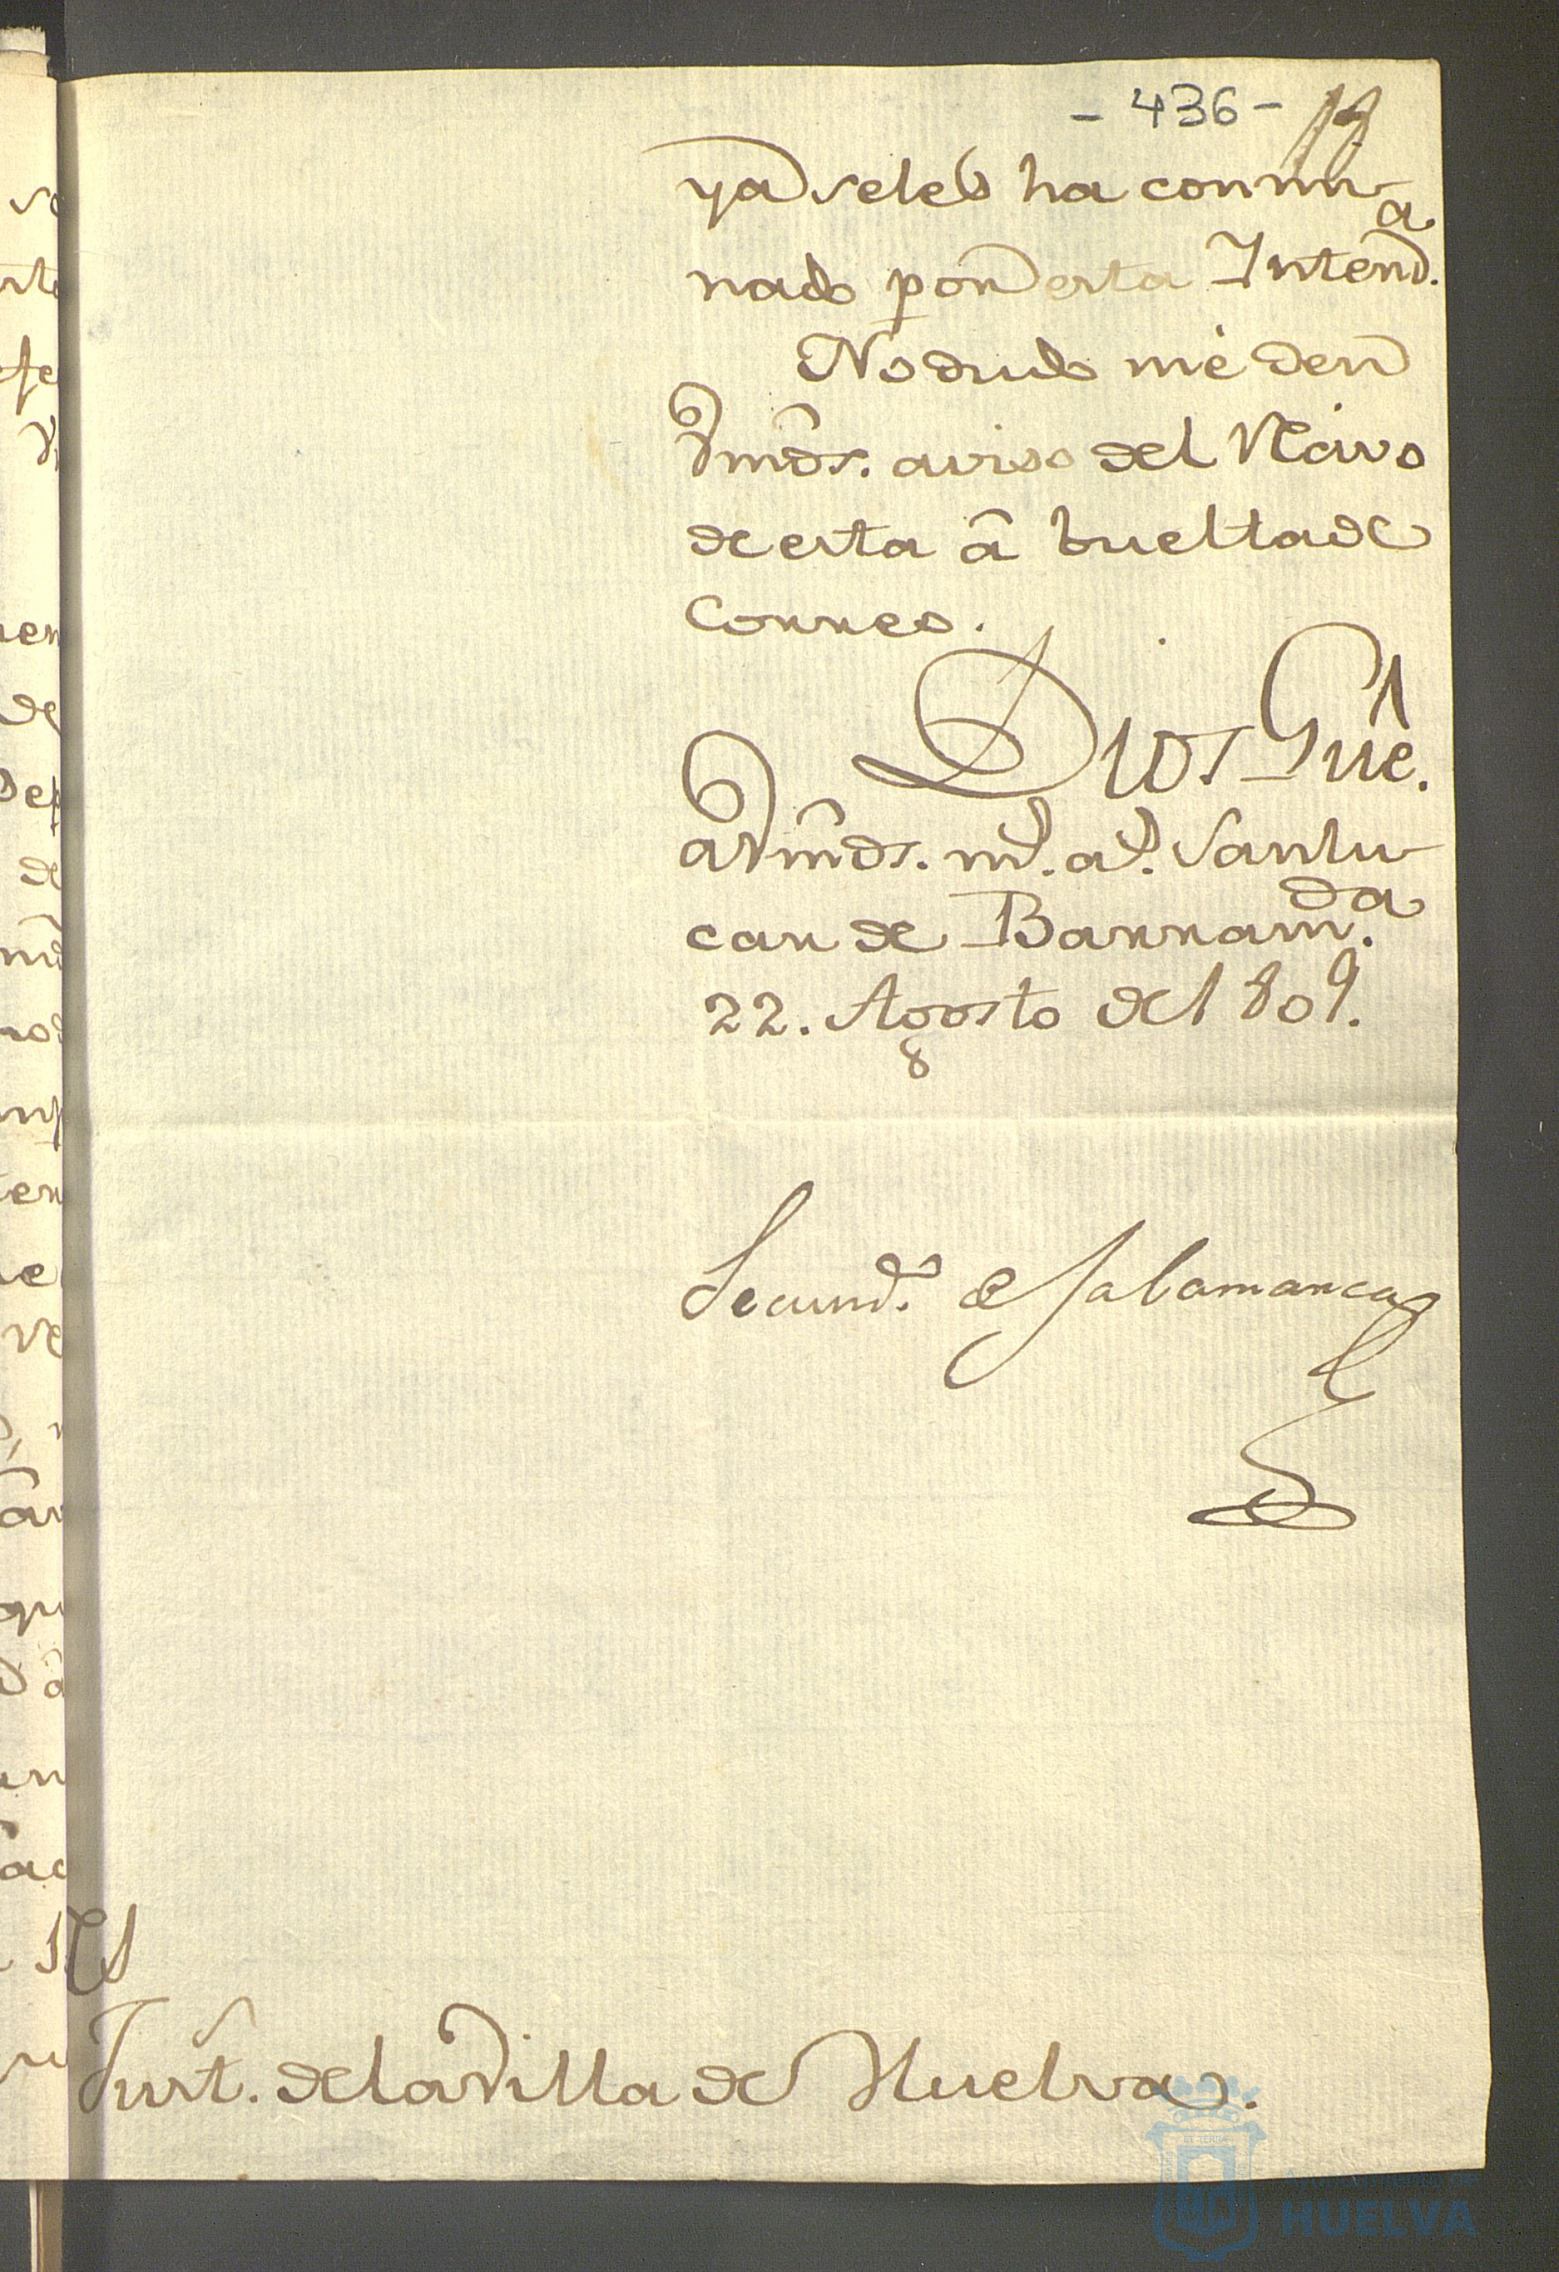 - 436 -
ya se les ha conmi-
nado por esta Intend.ª
No dudo me den
Vmds. aviso del Recivo
de esta â buelta de
Correo.
Dios Gûe.
a Vmds. m.s a.s Sanlu-
car de Barram.da
22. Agosto de 1809.
Secund.º de Salamanca
Just.ª de la Villa de Huelva.
HUELVA